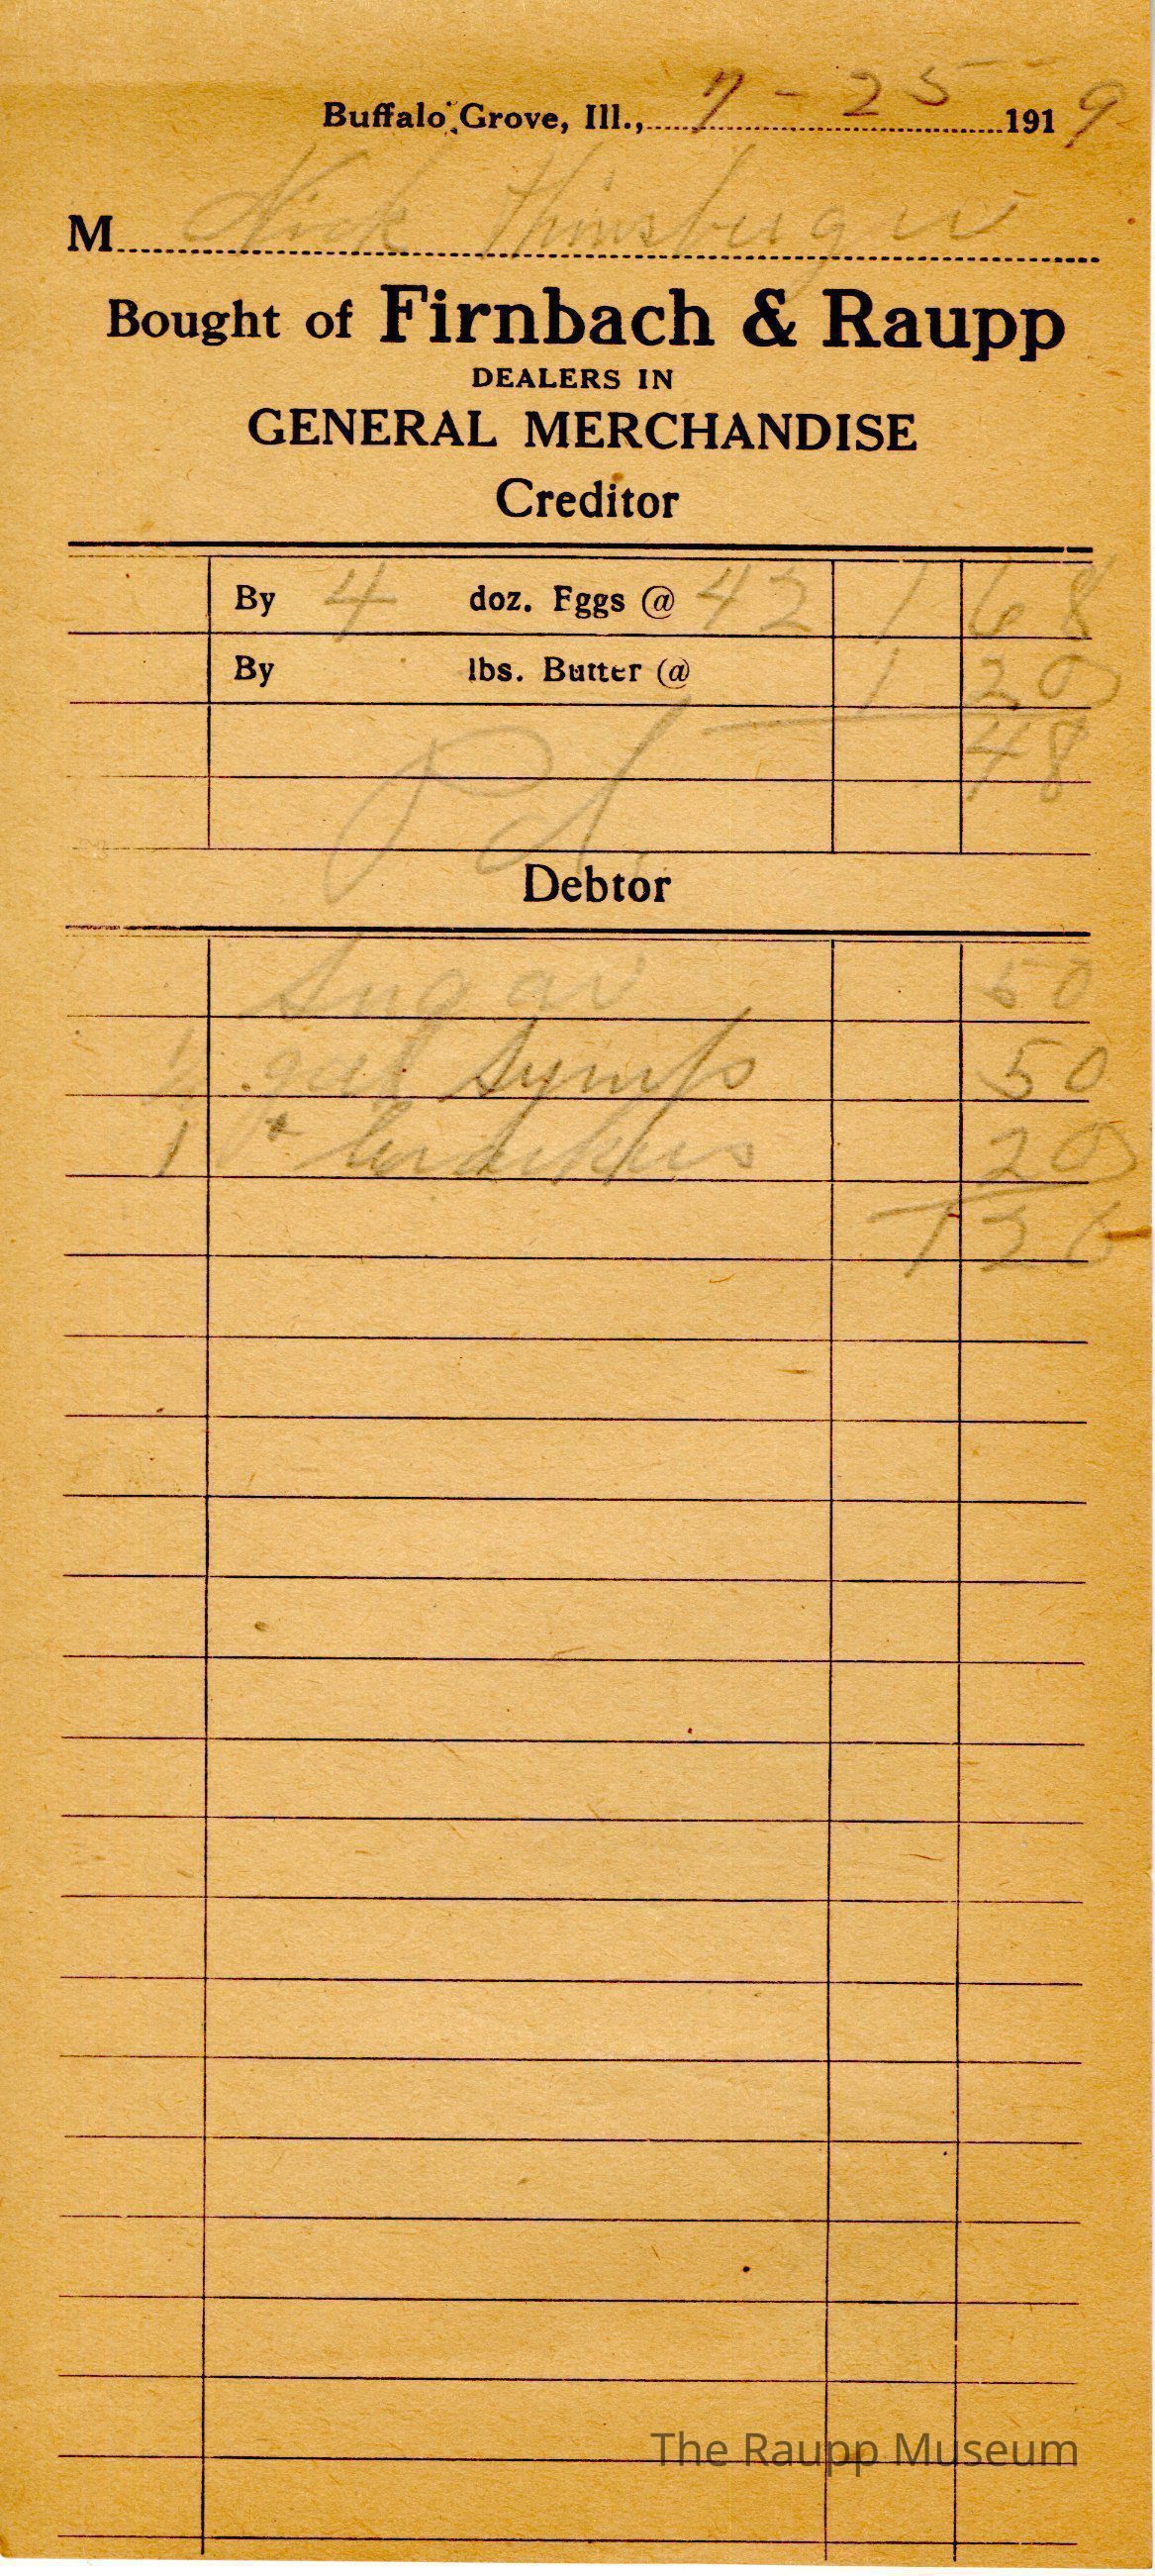 Buffalo Grove, Ill., 7 - 25 1919
M Nick
Bought of Firnbach & Raupp
DEALERS IN
GENERAL MERCHANDISE
Creditor
By 4 doz. Eggs @ 42 1 68
By lbs. Butter @ 1 20
48
Pd.
Debtor
Sugar 50
gal Syrup 50
1 20
1 20
The Raupp Museum